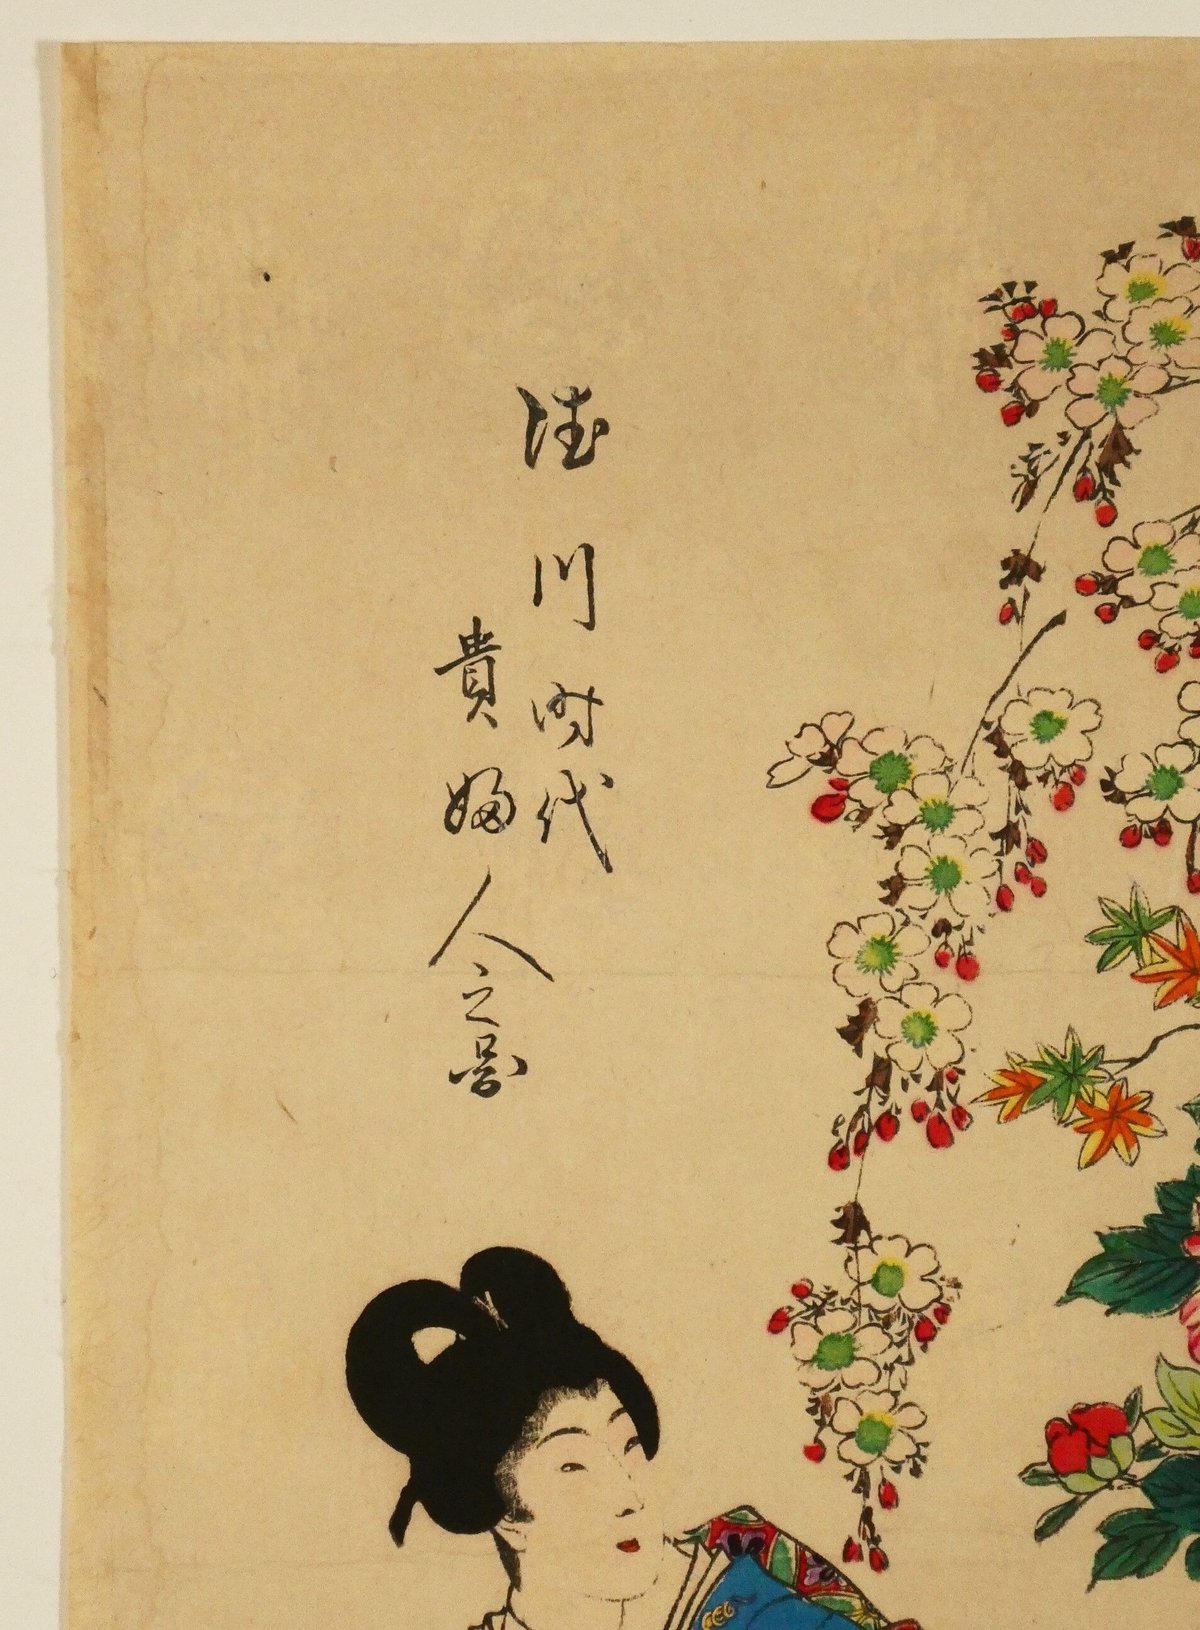 徳川時代
貴婦人之図